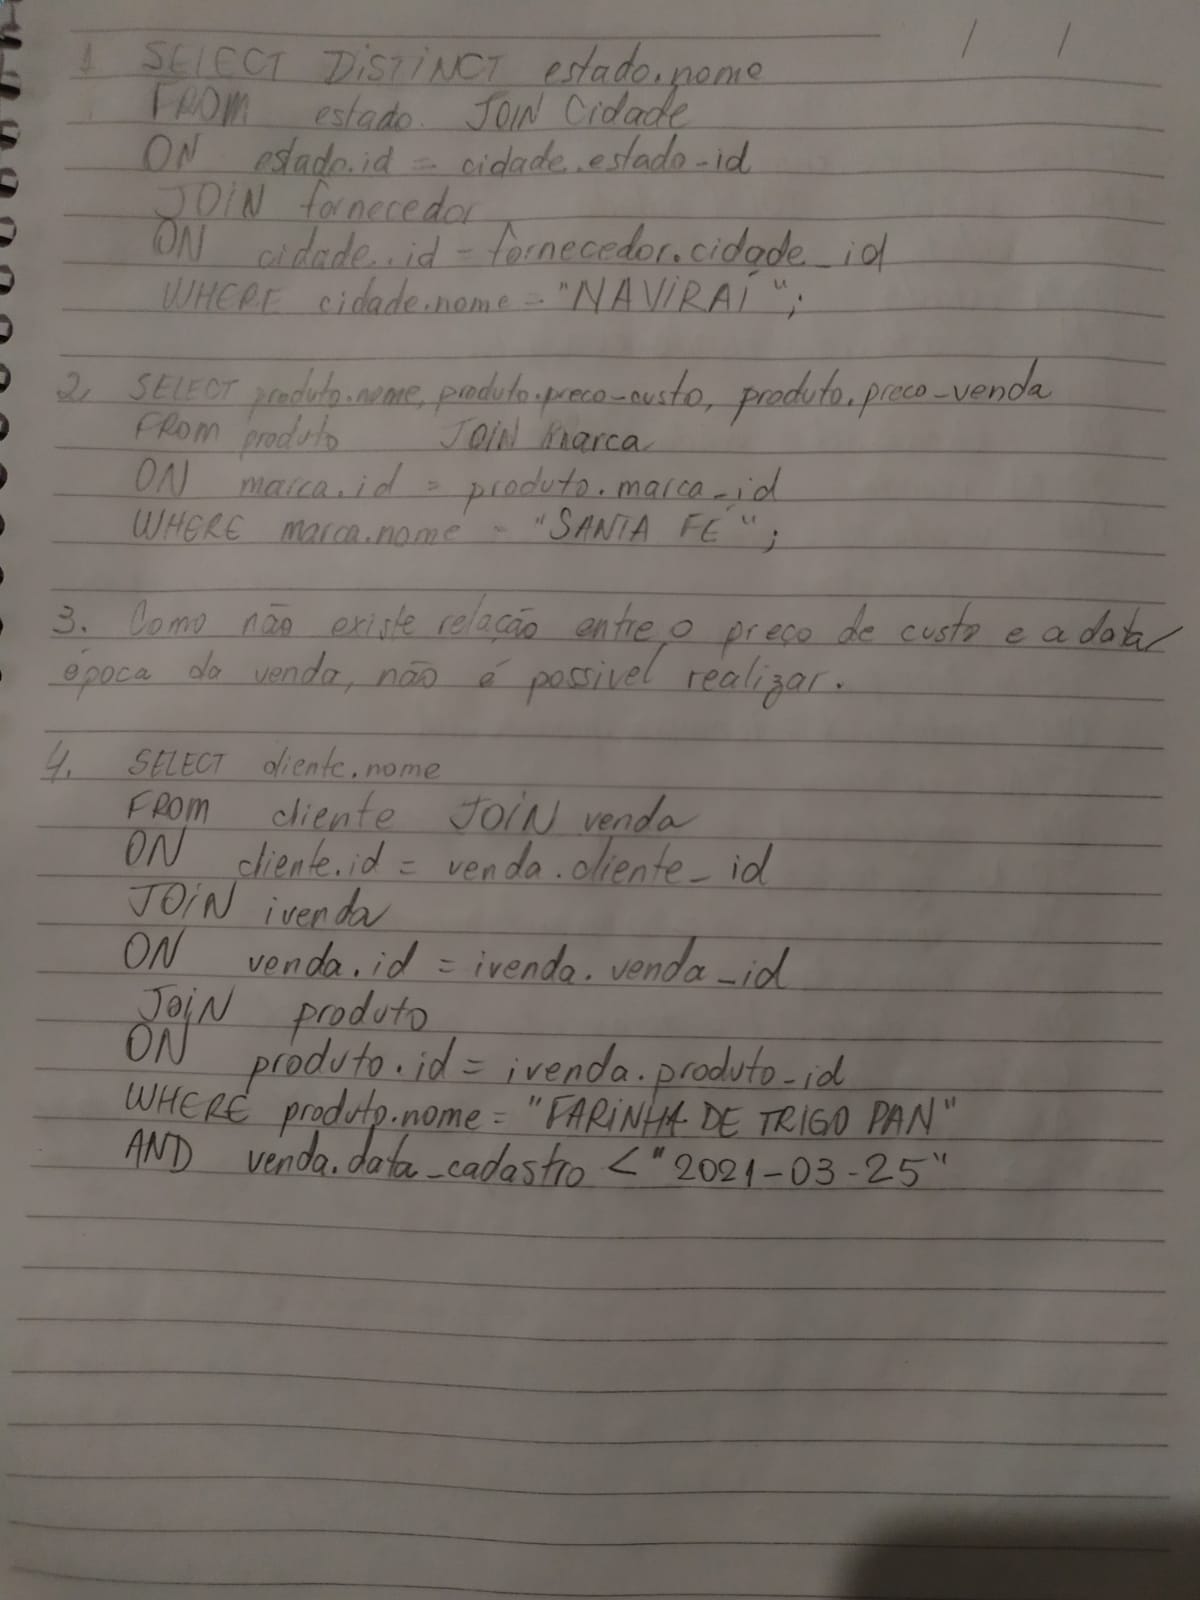 1 SELECT DISTINCT estado.nome
FROM estado. JOIN Cidade
ON estado.id = cidade.estado_id
JOIN fornecedor
ON cidade.id = fornecedor.cidade_id
WHERE cidade.nome = "NAVIRAÍ";
2. SELECT produto.nome, produto.preco_custo, produto.preco_venda
FROM produto JOIN marca
ON marca.id = produto.marca_id
WHERE marca.nome = "SANTA FÉ";
3. Como não existe relação entre o preço de custo e a data/
época da venda, não é possivel realizar.
4. SELECT cliente.nome
FROM cliente JOIN venda
ON cliente.id = venda.cliente_id
JOIN ivenda
ON venda.id = ivenda.venda_id
JOIN produto
ON produto.id = ivenda.produto_id
WHERE produto.nome = "FARINHA DE TRIGO PAN"
AND venda.data_cadastro < "2021-03-25"